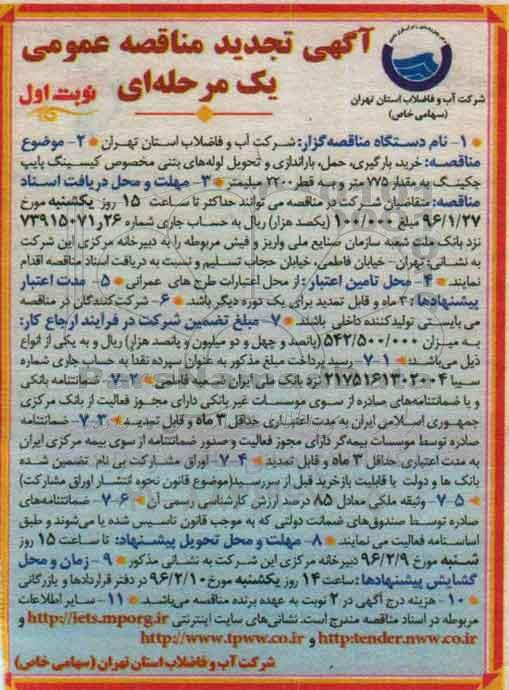 آگهی تجدید مناقصه عمومی
یک مرحله‌ای
نوبت اول
شرکت آب و فاضلاب استان تهران
(سهامی خاص)
۱- نام دستگاه مناقصه‌گزار: شرکت آب و فاضلاب استان تهران ۲- موضوع
مناقصه: خرید، بارگیری، حمل، باراندازی و تحویل لوله‌های بتنی مخصوص کیسینگ پایپ
جکینگ به مقدار ۷۷۵ متر و به قطر ۲۲۰۰ میلیمتر ۳- مهلت و محل دریافت اسناد
مناقصه: متقاضیان شرکت در مناقصه می توانند حداکثر تا ساعت ۱۵ روز یکشنبه مورخ
۹۶/۱/۲۷ مبلغ ۱۰۰/۰۰۰ (یکصد هزار) ریال به حساب جاری شماره ۲۶ر۷۳۹۱۵۰۷۱
نزد بانک ملت شعبه سازمان صنایع ملی واریز و فیش مربوطه را به دبیرخانه مرکزی این شرکت
به نشانی: تهران- خیابان فاطمی، خیابان حجاب تسلیم و نسبت به دریافت اسناد مناقصه اقدام
نمایند. ۴- محل تامین اعتبار: از محل اعتبارات طرح های عمرانی ۵- مدت اعتبار
پیشنهادها: ۳ ماه و قابل تمدید برای یک دوره دیگر باشد. ۶- شرکت‌کنندگان در مناقصه
می بایستی تولیدکننده داخلی باشند. ۷- مبلغ تضمین شرکت در فرآیند ارجاع کار:
به میزان ۵۴۲/۵۰۰/۰۰۰ (پانصد و چهل و دو میلیون و پانصد هزار) ریال و به یکی از انواع
ذیل می‌باشد: ۷-۱- رسید پرداخت مبلغ مذکور به عنوان سپرده نقدا به حساب جاری شماره
سیبا ۲۱۷۵۱۶۱۳۰۲۰۰۴ نزد بانک ملی ایران شعبه فاطمی ۷-۲- ضمانتنامه بانکی
و یا ضمانتنامه‌های صادره از سوی موسسات غیر بانکی دارای مجوز فعالیت از بانک مرکزی
جمهوری اسلامی ایران به مدت اعتباری حداقل ۳ ماه و قابل تمدید ۷-۳- ضمانتنامه
صادره توسط موسسات بیمه‌گر دارای مجوز فعالیت و صدور ضمانتنامه از سوی بیمه مرکزی ایران
به مدت اعتباری حداقل ۳ ماه و قابل تمدید ۷-۴- اوراق مشارکت بی نام تضمین شده
بانک ها و دولت با قابلیت بازخرید قبل از سررسید (موضوع قانون نحوه انتشار اوراق مشارکت)
۷-۵- وثیقه ملکی معادل ۸۵ درصد ارزش کارشناسی رسمی آن ۷-۶- ضمانتنامه‌های
صادره توسط صندوق‌های ضمانت دولتی که به موجب قانون تاسیس شده یا می‌شوند و طبق
اساسنامه فعالیت می نمایند. ۸- مهلت و محل تحویل پیشنهاد: تا ساعت ۱۵ روز
شنبه مورخ ۹۶/۲/۹ دبیرخانه مرکزی این شرکت به نشانی مذکور ۹- زمان و محل
گشایش پیشنهادها: ساعت ۱۴ روز یکشنبه مورخ ۹۶/۲/۱۰ در دفتر قراردادها و بازرگانی
۱۰- هزینه درج آگهی در ۲ نوبت به عهده برنده مناقصه می‌باشد. ۱۱- سایر اطلاعات
مربوطه در اسناد مناقصه مندرج است. نشانی‌های سایت اینترنتی http://iets.mporg.ir و
http:tender.nww.co.ir و http://www.tpww.co.ir
شرکت آب و فاضلاب استان تهران (سهامی خاص)